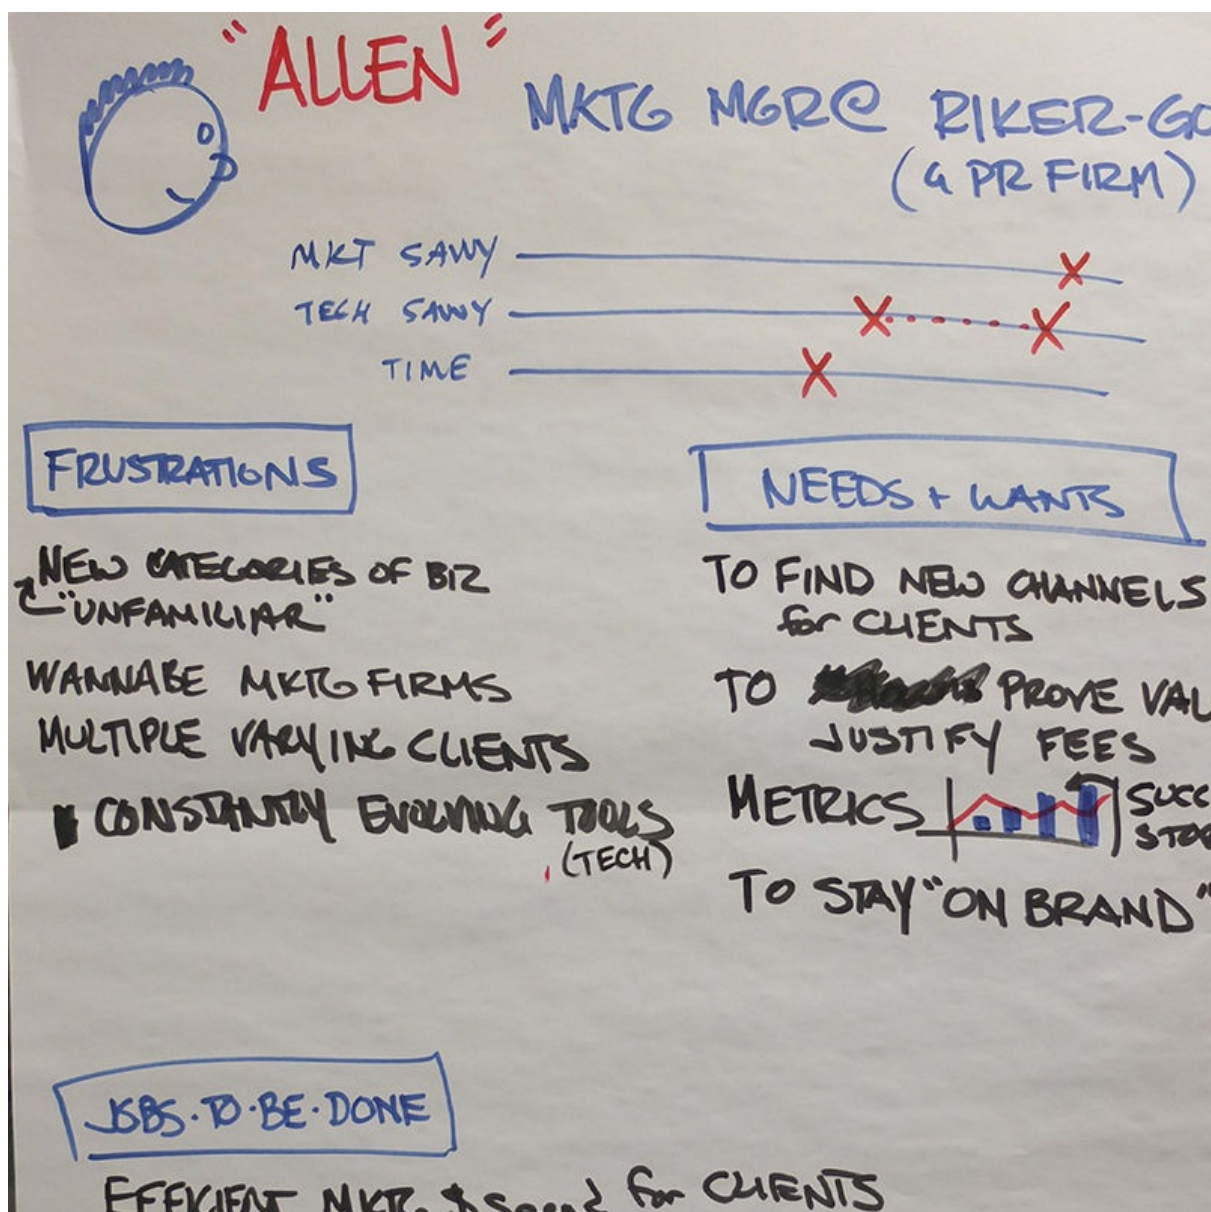 "ALLEN"
MKTG MGR@ RIKER-GO
(a PR FIRM)
MKT SAVVY
TECH SAVVY
TIME
FRUSTRATIONS
NEW CATEGORIES OF BIZ
"UNFAMILIAR"
WANNABE MKTG FIRMS
MULTIPLE VARYING CLIENTS
CONSTANTLY EVOLVING TOOLS
(TECH)
NEEDS + WANTS
TO FIND NEW CHANNELS
for CLIENTS
TO PROVE VAL
JUSTIFY FEES
METRICS SUCC
STO
TO STAY "ON BRAND"
JOBS·TO·BE·DONE
EFFICIENT MKTG $ Spend for CLIENTS